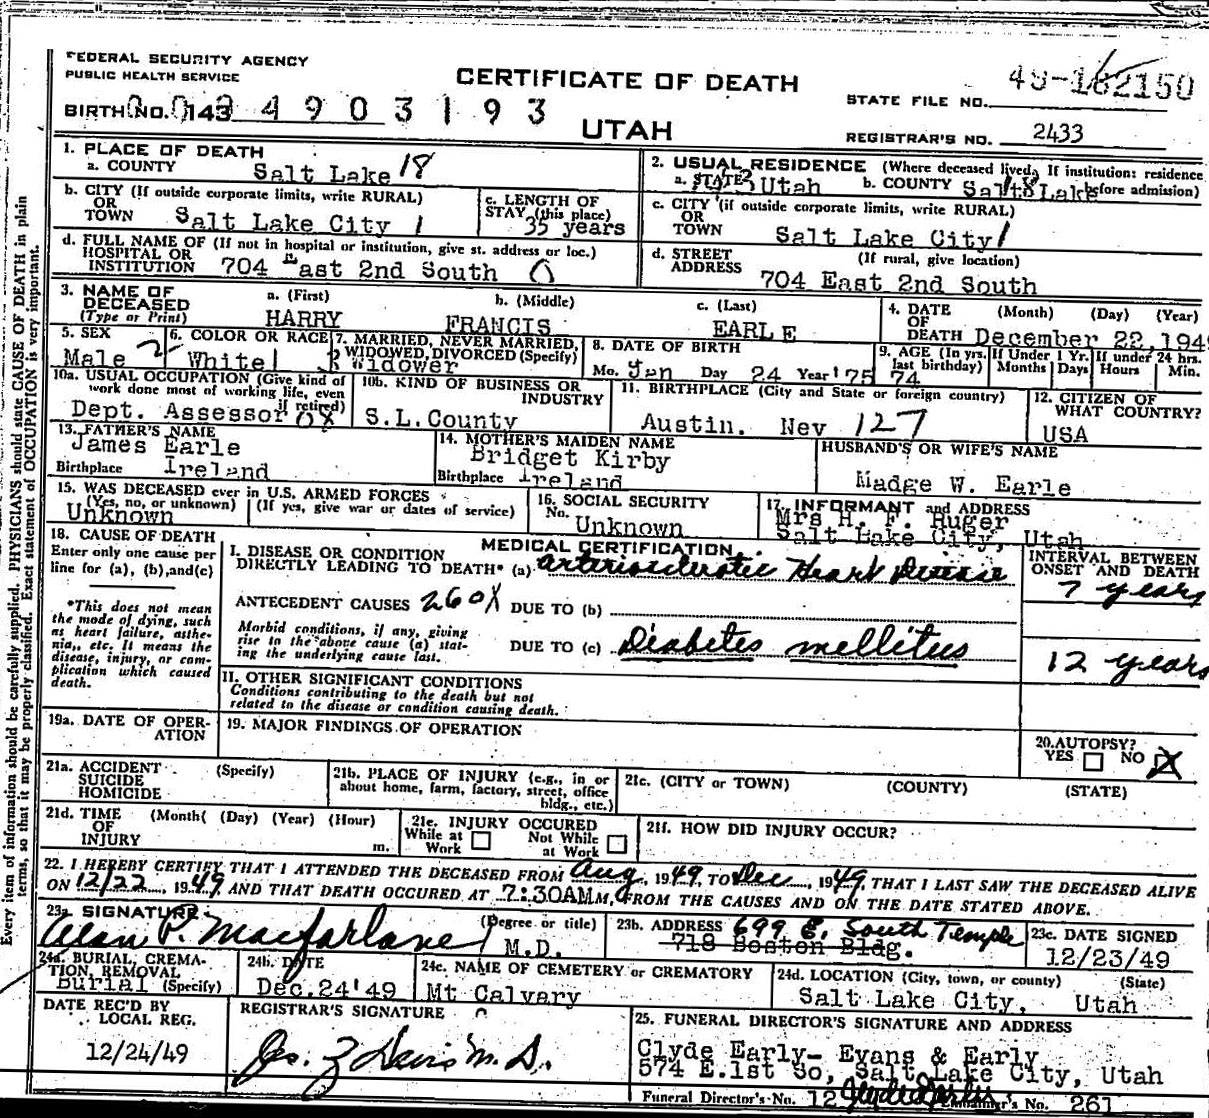 FEDERAL SECURITY AGENCY
PUBLIC HEALTH SERVICE
CERTIFICATE OF DEATH
49-182150
STATE FILE NO.
BIRTH NO. 143 4903193
UTAH
REGISTRAR'S NO. 2433
1. PLACE OF DEATH
a. COUNTY Salt Lake 18
2. USUAL RESIDENCE (Where deceased lived. If institution: residence before admission)
a. STATE Utah b. COUNTY Salt Lake
b. CITY (If outside corporate limits, write RURAL)
OR
TOWN Salt Lake City 1
c. LENGTH OF
STAY (this place)
35 years
c. CITY (if outside corporate limits, write RURAL)
OR
TOWN Salt Lake City 1
d. FULL NAME OF (If not in hospital or institution, give st. address or loc.)
HOSPITAL OR
INSTITUTION 704 East 2nd South 0
d. STREET
ADDRESS
(If rural, give location)
704 East 2nd South
3. NAME OF
DECEASED
(Type or Print)
a. (First) b. (Middle) c. (Last)
HARRY FRANCIS EARLE
4. DATE
OF
DEATH
(Month) (Day) (Year)
December 22, 194
5. SEX
Male 2
6. COLOR OR RACE
White 1
7. MARRIED, NEVER MARRIED,
WIDOWED, DIVORCED (Specify)
3 Widower
8. DATE OF BIRTH
Mo. Jan Day 24 Year '75
9. AGE (In yrs.
last birthday)
74
If Under 1 Yr.
Months Days
If under 24 hrs.
Hours Min.
10a. USUAL OCCUPATION (Give kind of
work done most of working life, even
if retired)
Dept. Assessor 0X
10b. KIND OF BUSINESS OR
INDUSTRY
S.L. County
11. BIRTHPLACE (City and State or foreign country)
Austin. Nev 127
12. CITIZEN OF
WHAT COUNTRY?
USA
13. FATHER'S NAME
James Earle
Birthplace Ireland
14. MOTHER'S MAIDEN NAME
Bridget Kirby
Birthplace Ireland
HUSBAND'S OR WIFE'S NAME
Madge W. Earle
15. WAS DECEASED ever in U.S. ARMED FORCES
(Yes, no, or unknown) (If yes, give war or dates of service)
Unknown
16. SOCIAL SECURITY
No. Unknown
17. INFORMANT and ADDRESS
Mrs H. F. Auger
Salt Lake City, Utah
18. CAUSE OF DEATH
Enter only one cause per
line for (a), (b), and (c)
*This does not mean
the mode of dying, such
as heart failure, asthe-
nia, etc. It means the
disease, injury, or com-
plication which caused
death.
MEDICAL CERTIFICATION
I. DISEASE OR CONDITION
DIRECTLY LEADING TO DEATH* (a) Arteriosclerotic Heart Disease
INTERVAL BETWEEN
ONSET AND DEATH
7 years
ANTECEDENT CAUSES 260X DUE TO (b)
Morbid conditions, if any, giving
rise to the above cause (a) stat-
ing the underlying cause last.
DUE TO (c) Diabetes mellitus
12 years
II. OTHER SIGNIFICANT CONDITIONS
Conditions contributing to the death but not
related to the disease or condition causing death.
19a. DATE OF OPER-
ATION
19. MAJOR FINDINGS OF OPERATION
20. AUTOPSY?
YES NO X
21a. ACCIDENT (Specify)
SUICIDE
HOMICIDE
21b. PLACE OF INJURY (e.g., in or
about home, farm, factory, street, office
bldg., etc.)
21c. (CITY or TOWN) (COUNTY) (STATE)
21d. TIME (Month) (Day) (Year) (Hour)
OF
INJURY m.
21e. INJURY OCCURED
While at Work Not While at Work
21f. HOW DID INJURY OCCUR?
22. I HEREBY CERTIFY THAT I ATTENDED THE DECEASED FROM Aug, 1949, TO Dec, 1949, THAT I LAST SAW THE DECEASED ALIVE
ON 12/22, 1949 AND THAT DEATH OCCURED AT 7:30AM M, FROM THE CAUSES AND ON THE DATE STATED ABOVE.
23a. SIGNATURE (Degree or title)
Alan P. Macfarlane M.D.
23b. ADDRESS 699 E. South Temple
718 Boston Bldg.
23c. DATE SIGNED
12/23/49
24a. BURIAL, CREMA-
TION, REMOVAL
Burial (Specify)
24b. DATE
Dec. 24 '49
24c. NAME OF CEMETERY or CREMATORY
Mt Calvary
24d. LOCATION (City, town, or county) (State)
Salt Lake City, Utah
DATE REC'D BY
LOCAL REG.
12/24/49
REGISTRAR'S SIGNATURE
25. FUNERAL DIRECTOR'S SIGNATURE AND ADDRESS
Clyde Early- Evans & Early
574 E.1st So, Salt Lake City, Utah
Funeral Director's No. 12 Embalmer's No. 261
Every item of information should be carefully supplied. PHYSICIANS should state CAUSE OF DEATH in plain
terms, so that it may be properly classified. Exact statement of OCCUPATION is very important.